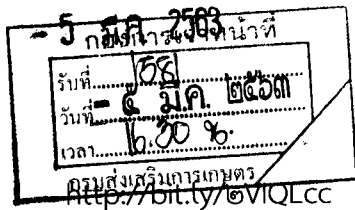 - 5 มี.ค. 2563
กองการเจ้าหน้าที่
รับที่ 158
วันที่ - ๕ มี.ค. ๒๕๖๓
เวลา 16.30 น.
กรมส่งเสริมการเกษตร
http://bit.ly/๒VIQLcc